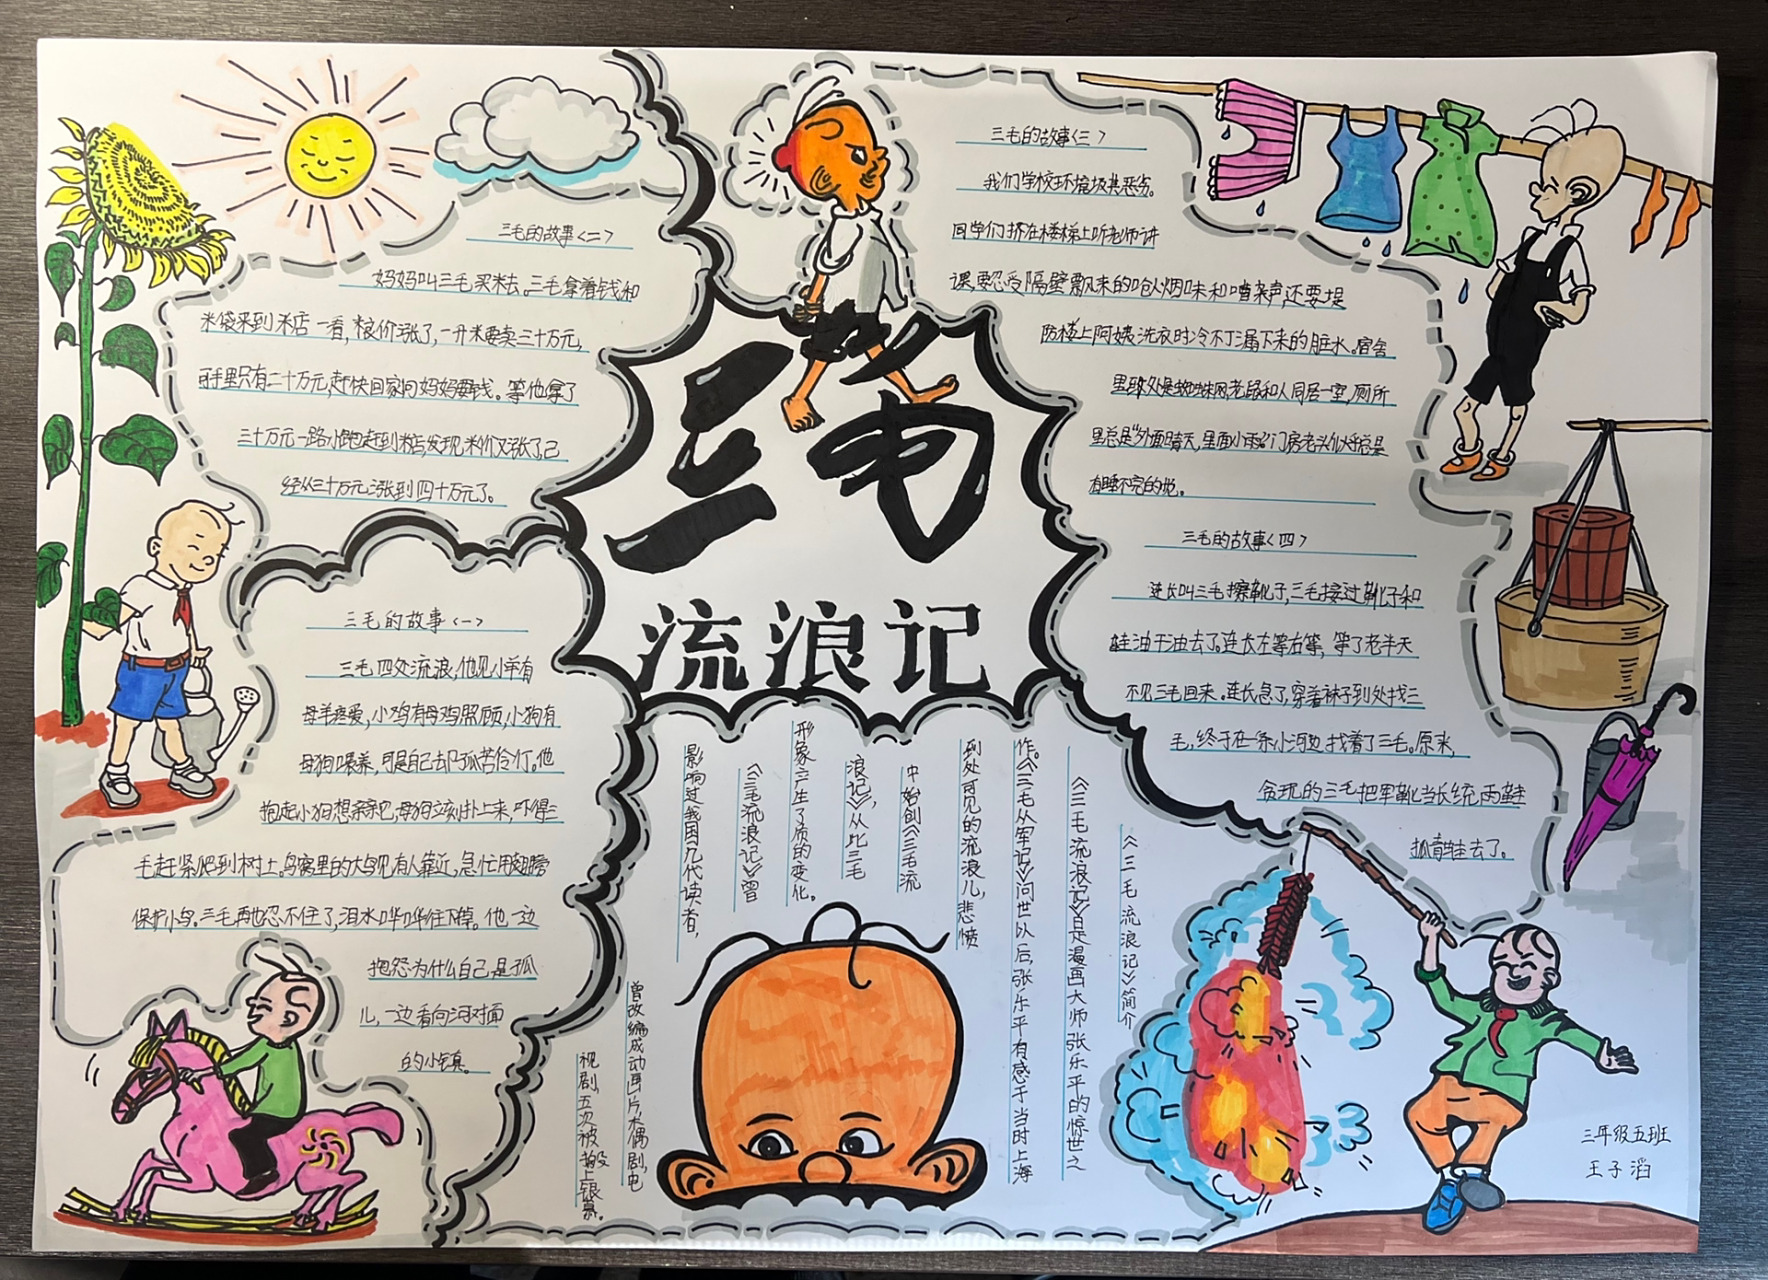 三毛
流浪记
三毛的故事<一>
三毛四处流浪,他见小羊有
母羊疼爱,小鸡有母鸡照顾,小狗有
母狗喂养,可是自己却孤苦伶仃。他
抱起小狗想亲亲吧,母狗立刻扑上来,吓得三
毛赶紧爬到树上。鸟窝里的大鸟见有人靠近,急忙用翅膀
保护小鸟。三毛再也忍不住了,泪水哗哗往下掉。他一边
抱怨为什么自己是孤
儿,一边看向河对面
的小镇。
三毛的故事<二>
妈妈叫三毛买米去。三毛拿着钱和
米袋来到米店一看,粮价涨了,一升米要卖三十万元,
可手里只有二十万元,赶快回家问妈妈要钱。等他拿了
三十万元一路小跑赶到米店,发现米价又涨了,已
经从三十万元涨到四十万元了。
三毛的故事<三>
我们学校环境极其恶劣。
同学们挤在楼梯上听老师讲
课,要忍受隔壁飘来的呛人烟味和嘈杂声,还要提
防楼上阿姨洗衣时冷不丁漏下来的脏水。宿舍
里到处是蜘蛛网,老鼠和人同居一室,厕所
里总是"外面晴天,里面小雨",门房老头儿好像总是
有睡不完的觉。
三毛的故事<四>
连长叫三毛擦靴子,三毛接过靴子和
鞋油干活去了。连长左等右等,等了老半天
不见三毛回来。连长急了,穿着袜子到处找三
毛,终于在一条小河边找着了三毛。原来,
贪玩的三毛把军靴当长统雨鞋
抓青蛙去了。
《三毛流浪记》简介
《三毛流浪记》是漫画大师张乐平的惊世之
作。《三毛从军记》问世以后,张乐平有感于当时上海
到处可见的流浪儿,悲愤
中始创《三毛流
浪记》,从此三毛
形象产生了质的变化。
《三毛流浪记》曾
影响过我国几代读者,
曾改编成动画片、木偶剧、电
视剧,五次被搬上银幕。
三年级五班
王子滔